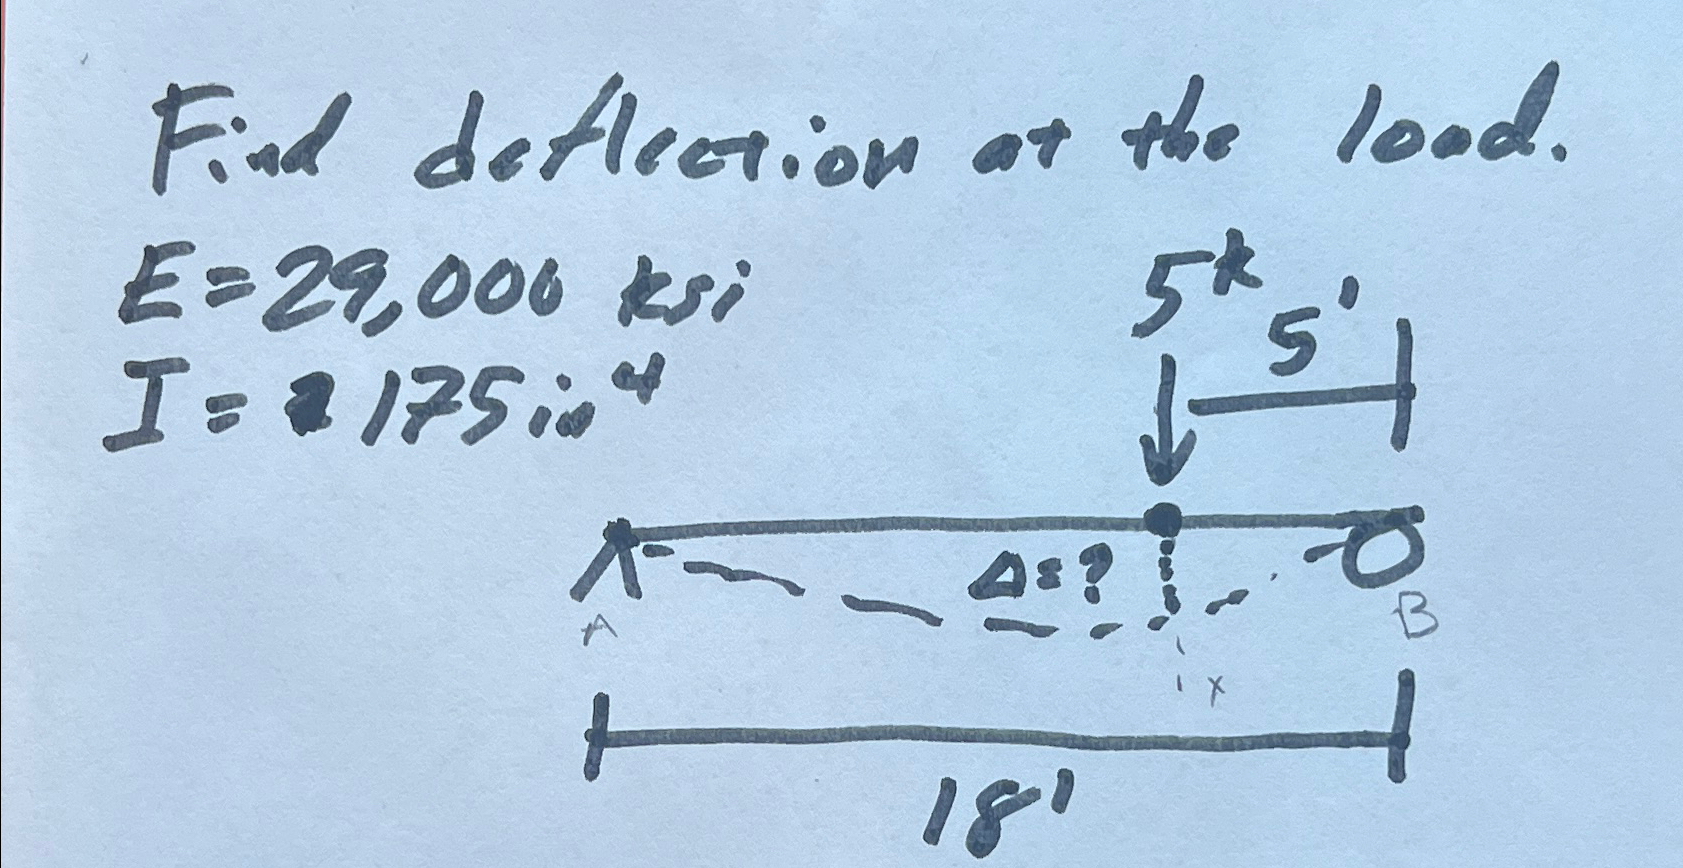 Find deflection at the load.
E = 29,000 ksi
I = 175 in⁴
5ᵏ
5'
Δ = ?
A
B
x
18'